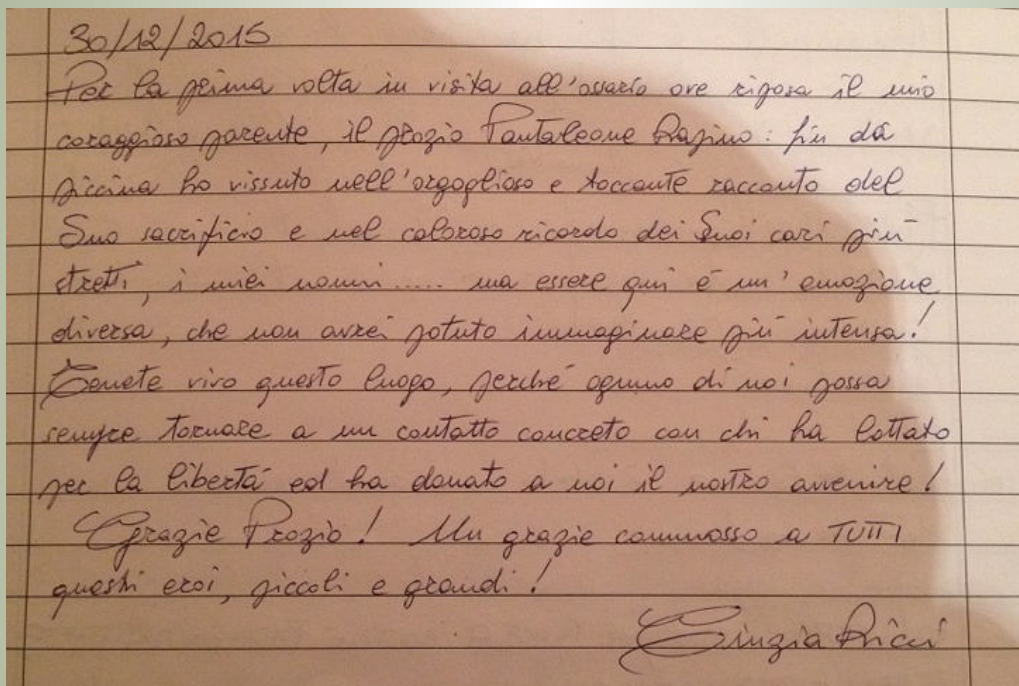 30/12/2015
Per la prima volta in visita all'ossario ove riposa il mio
coraggioso parente, il prozio Pantaleone Rapino: fin da
piccina ho vissuto nell'orgoglioso e toccante racconto del
Suo sacrificio e nel caloroso ricordo dei Suoi cari più
stretti, i miei nonni..... ma essere qui è un'emozione
diversa, che non avrei potuto immaginare più intensa!
Tenete vivo questo luogo, perché ognuno di noi possa
sempre tornare a un contatto concreto con chi ha lottato
per la libertà ed ha donato a noi il nostro avvenire!
Grazie Prozio! Un grazie commosso a TUTTI
questi eroi, piccoli e grandi!
Cinzia Ricci